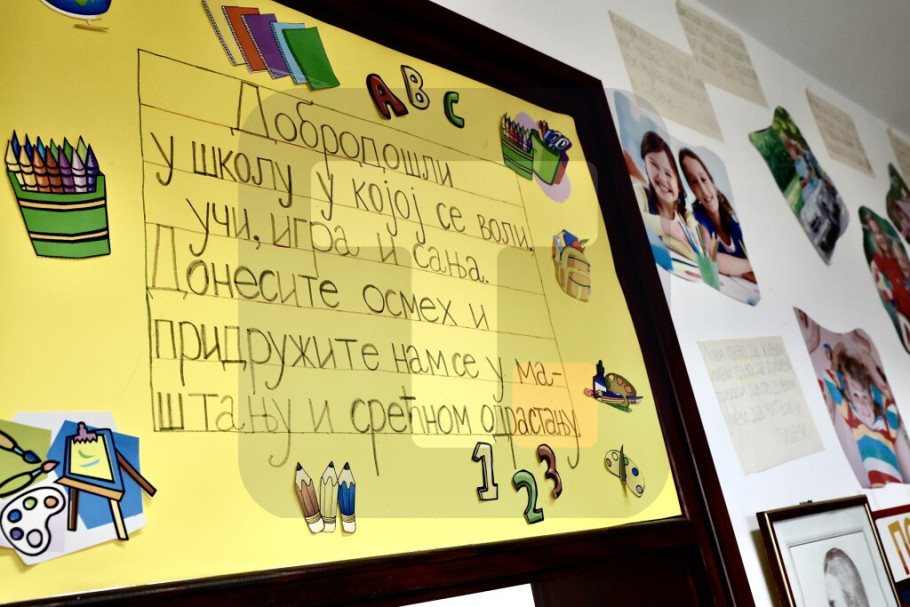 A B C
Добродошли
у школу у којој се воли,
учи, игра и сања.
Донесите осмех и
придружите нам се у ма-
штању и срећном одрастању
1 2 3